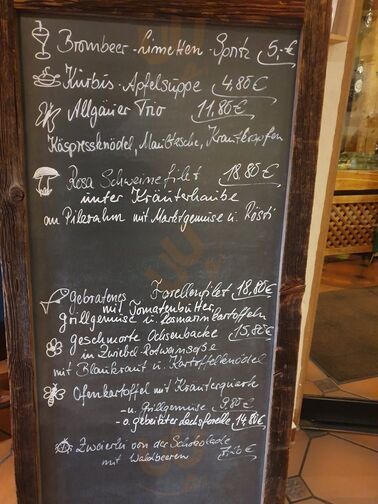 Brombeer-Limetten-Spritz 5,-€
Kürbis-Apfelsuppe 4,80€
Allgäuer Trio 11,80€
Kässpressknödel, Maultasche, Krautkrapfen
Rosa Schweinefilet 18.80€
unter Kräuterhaube
an Pilzrahm mit Marktgemüse u. Rösti
gebratenes Forellenfilet 18,80€
mit Tomatenbutter
Grillgemüse u. Rosmarinkartoffeln
geschmorte Ochsenbacke 15,80€
in Zwiebel-Rotweinsoße
mit Blaukraut u. Kartoffelknödel
Ofenkartoffel mit Kräuterquark
-u. Grillgemüse 9,80€
-o. gebeizter Lachsforelle 14,80€
Zweierlei von der Schokolade
mit Waldbeeren 7,20€